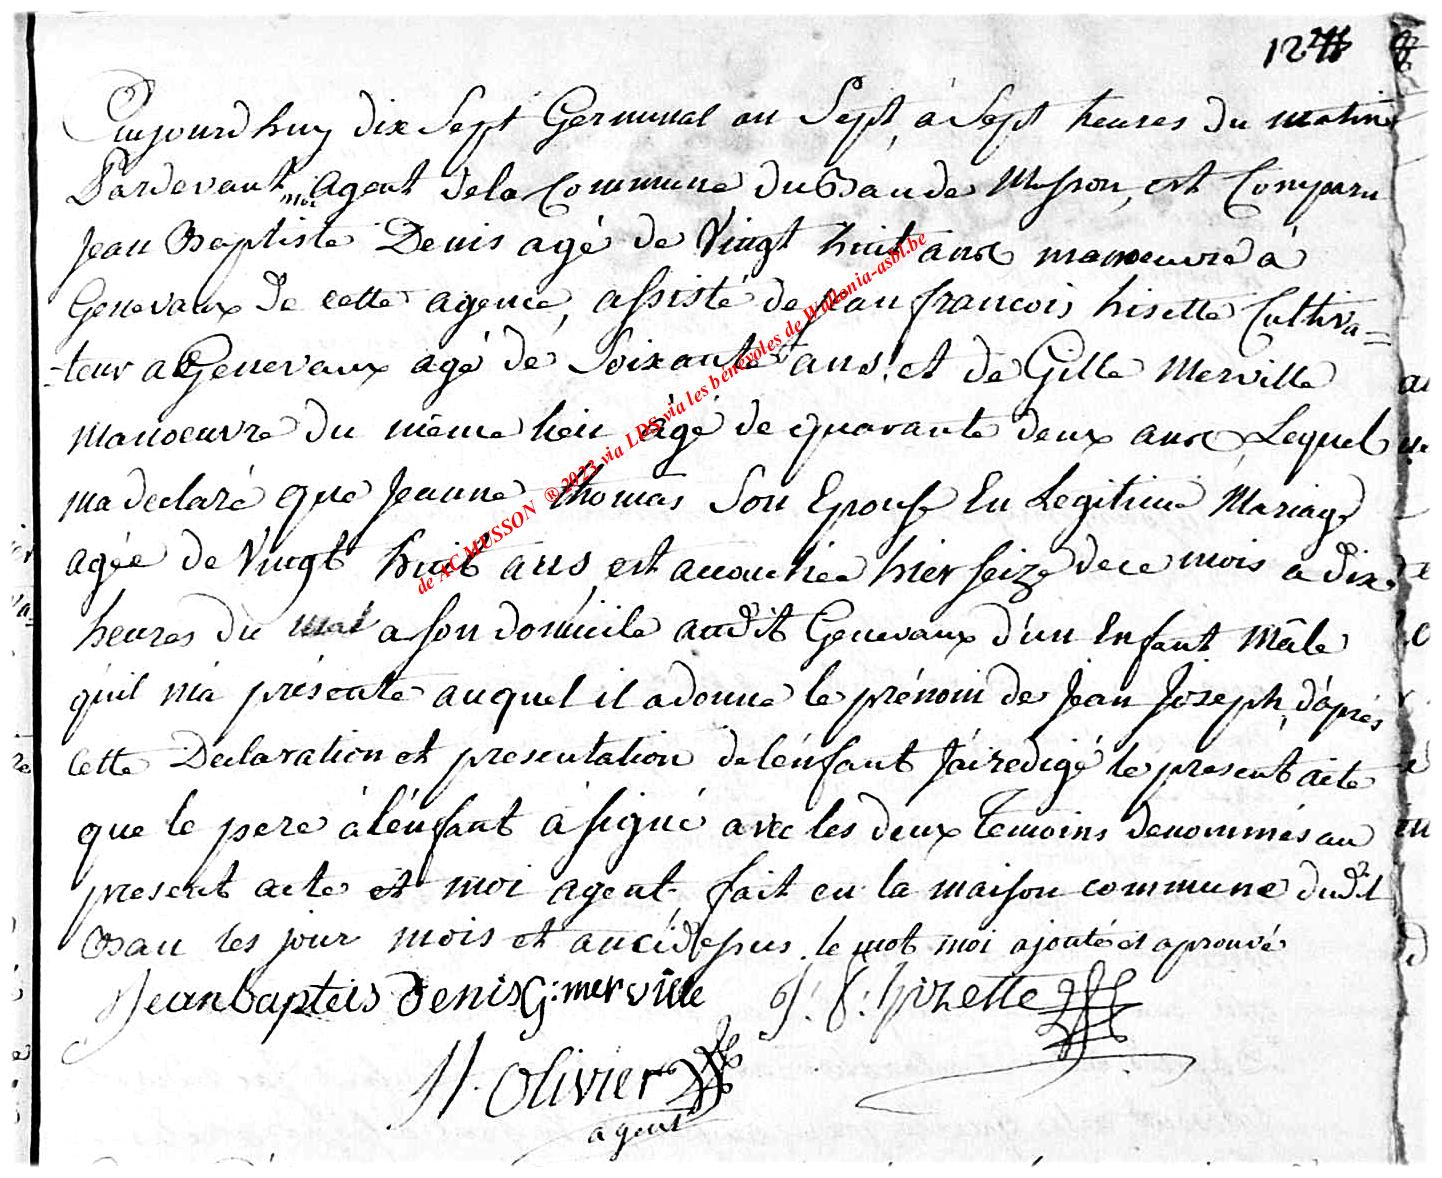 12
Aujourd huy dix Sept Germinal an Sept, à Sept heures du matin
Pardevant moi Agent dela Commune du Ban de Musson, est Comparu
Jean Baptiste Denis agé de Vingt huit ans manoeuvre à
Genevaux de cette agence, assisté de Jean francois hisette Cultiva=
-teur a Genevaux agé de Soixante ans, et de Gille Merville
manoeuvre du même lieu âgé de quarante deux ans, Lequel
ma declaré que Jeanne thomas Son Epouse En Legitime Mariage
agée de Vingt huit ans est accouchée hier seize de ce mois a dix
heures du mat a son domicile audit Genevaux d'un Enfant Mâle
qu'il m'a présenté auquel il a donné le prénom de Jean Joseph, d'après
cette Declaration et presentation de l'énfant J'ai redigé le present acte
que le pere à l'énfant à signé avec les deux Temoins denommés au
present acte et moi agent, fait en la maison commune dudit
Ban les jour mois et an cidessus. le mot moi ajouté et aprouvé
Jean bapteis denis G: merville J: f: hizette
H. Olivier
agent
de AC MUSSON ® 2023 via LDS via les bénévoles de Wallonia-asbl.be